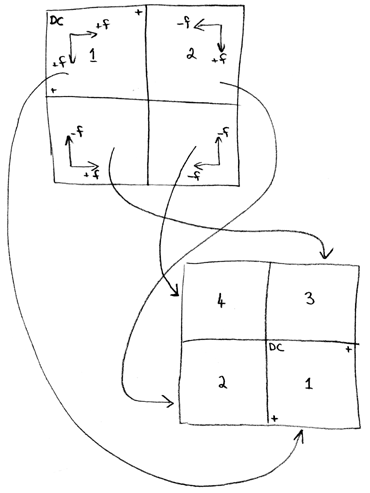 DC +
+f -f
1 2
+f +f
+
-f -f
+f -f
4 3
DC +
2 1
+